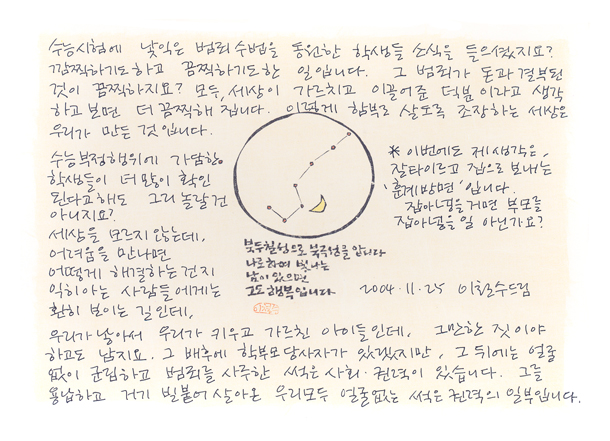 수능시험에 낯익은 범죄수법을 동원한 학생들 소식을 들으셨지요?
깜찍하기도하고 끔찍하기도한 일입니다. 그 범죄가 돈과 결부된
것이 끔찍하지요? 모두, 세상이 가르치고 이끌어준 덕분이라고 생각
하고보면 더 끔찍해 집니다. 이렇게 함부로 살도록 조장하는 세상은
우리가 만든 것입니다.
수능부정행위에 가담한
학생들이 더 많이 확인
된다고해도 그리 놀랄건
아니지요?
세상을 모르지 않는데,
어려움을 만나면
어떻게 해결하는건지
익히아는 사람들에게는
훤히 보이는 길인데,
북두칠성으로 북극성을 압니다
나로하여 빛나는
남이 있으면
그도 행복입니다
* 이번에도 제 생각은,
잘타이르고 집으로 보내는
'훈계방면' 입니다.
잡아넣을거면 부모를
잡아넣을 일 아닌가요?
2004.11.25 이철수드림
우리가 낳아서 우리가 키우고 가르친 아이들인데, 그만한 짓이야
하고도 남지요. 그 배후에 학부모당사자가 있겠지만, 그 뒤에는 얼굴
없이 군림하고 범죄를 사주한 썩은 사회·권력이 있습니다. 그를
용납하고 거기 빌붙어 살아온 우리모두 얼굴없는 썩은 권력의 일부입니다.